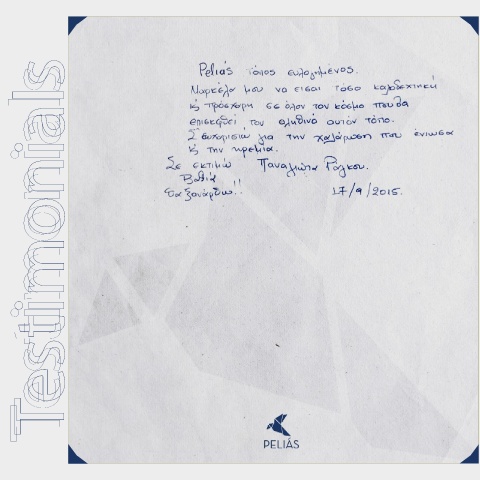 Testimonials
Peliás τόπος ευλογημένος.
μου να εισαι τόσο καλοδεχτική
κ πρόσχαρη σε όλον τον κόσμο που θα
επισκεφθεί τον αληθινό αυτόν τόπο.
Σ' ευχαριστώ για την χαλάρωση που ένιωσα
κ την ηρεμία.
Σε εκτιμώ Παναγιώτα Ράγκου.
Βαθιά
θα ξανάρθω!! 17/9/2015.
PELIÁS